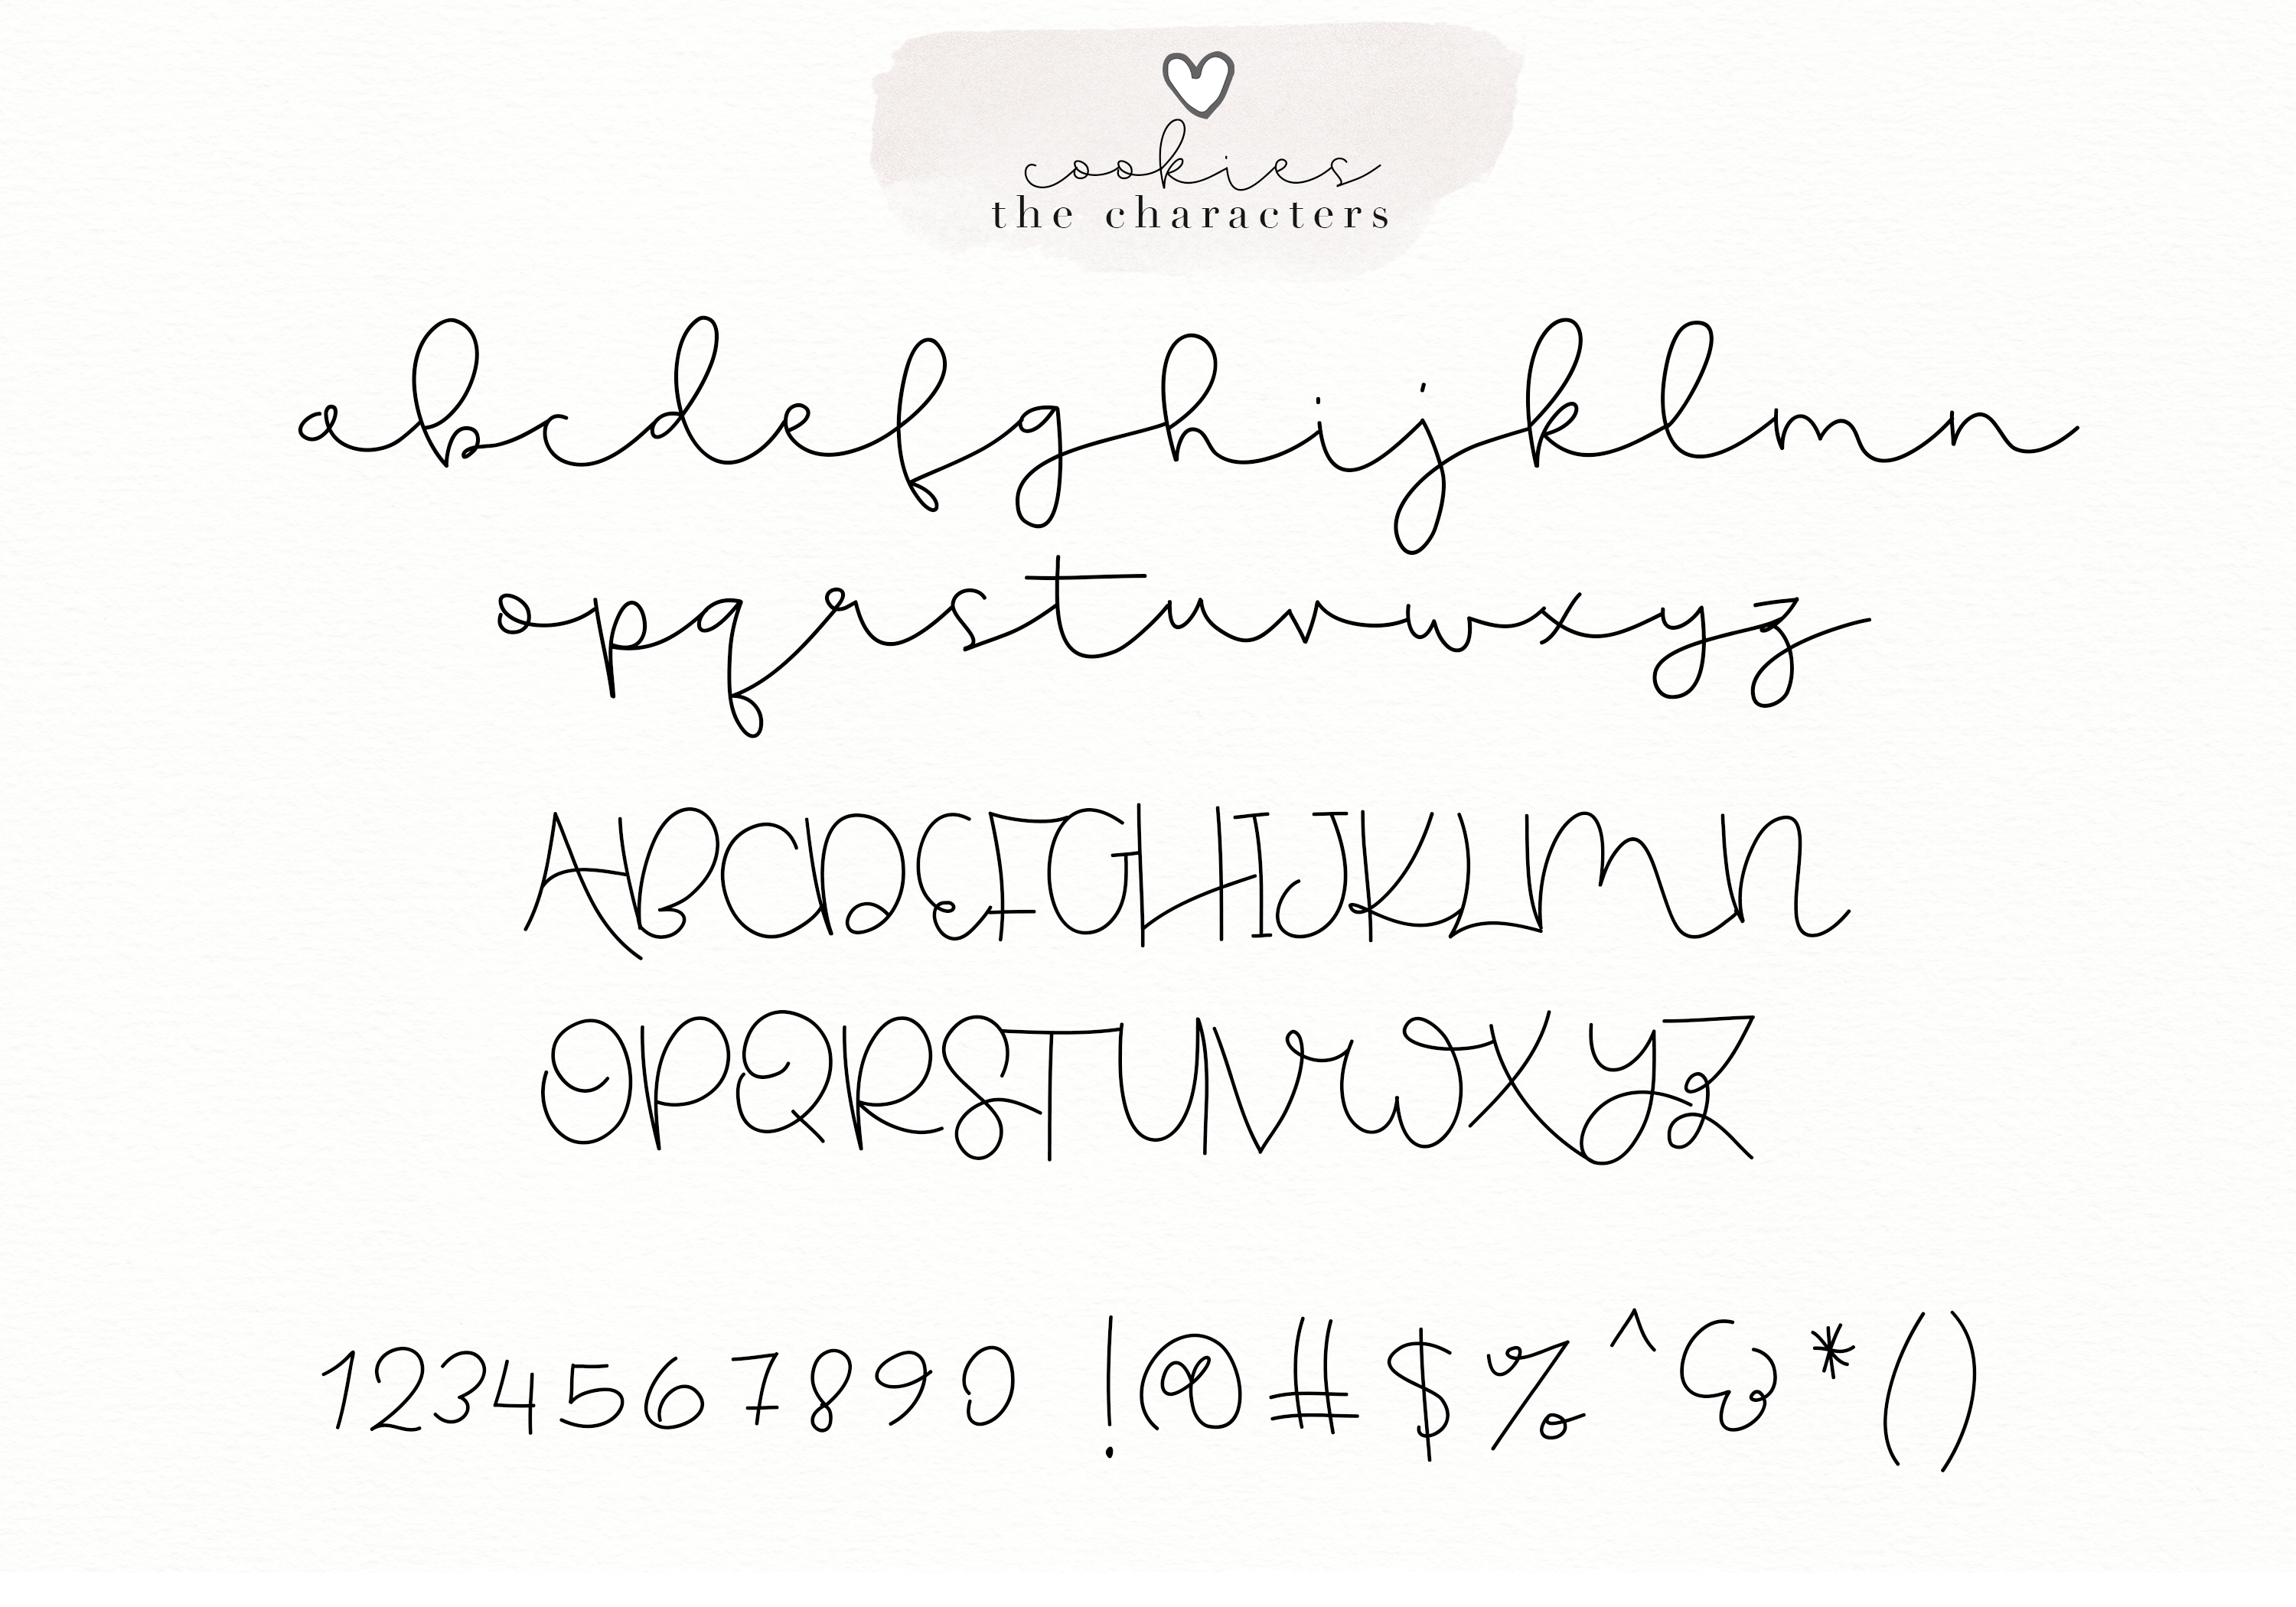 cookies
the characters
abcdefghijklmn
opqrstuvwxyz
ABCDEFGHIJKLMN
OPQRSTUVWXYZ
1234567890 !@#$%^&*()